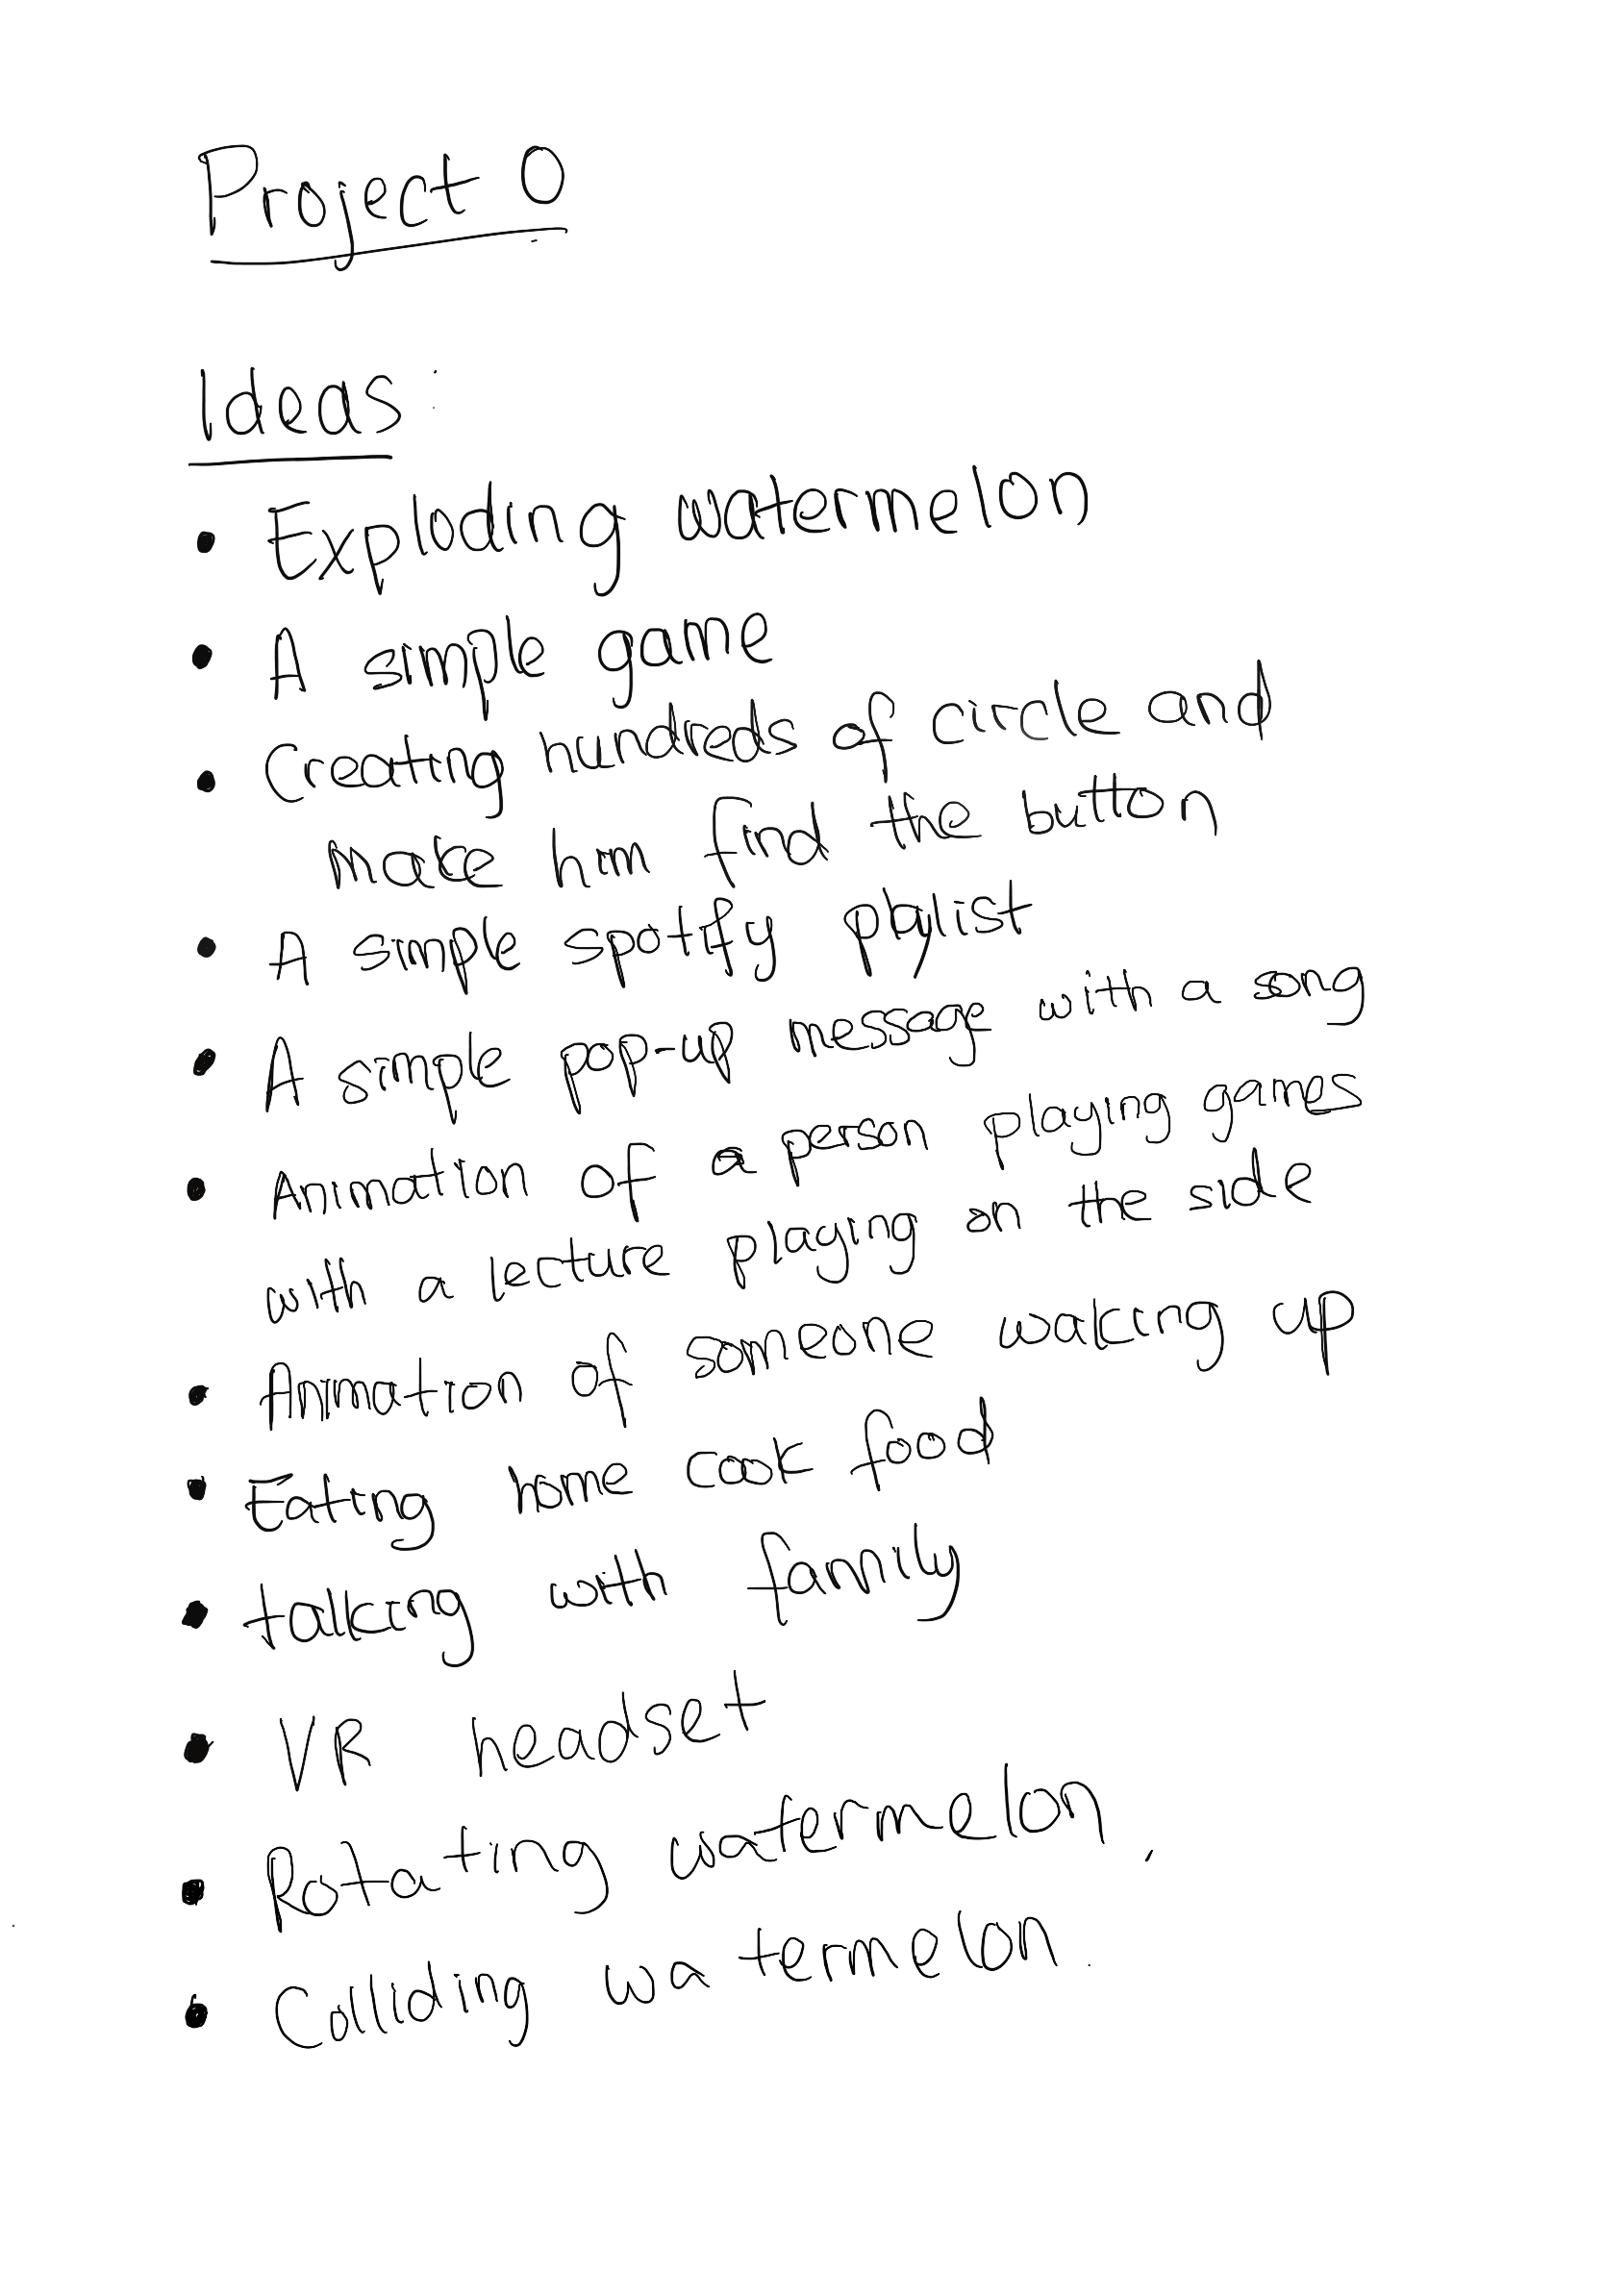 Project 0
Ideas:
• Exploding watermelon
• A simple game
• Creating hundreds of circle and
make him find the button
• A simple spotify playlist
• A simple pop-up message with a song
• Animation of a person playing games
with a lecture playing on the side
• Animation of someone waking up
• Eating home cook food
• talking with family
• VR headset
• Rotating watermelon.
• Colliding watermelon.